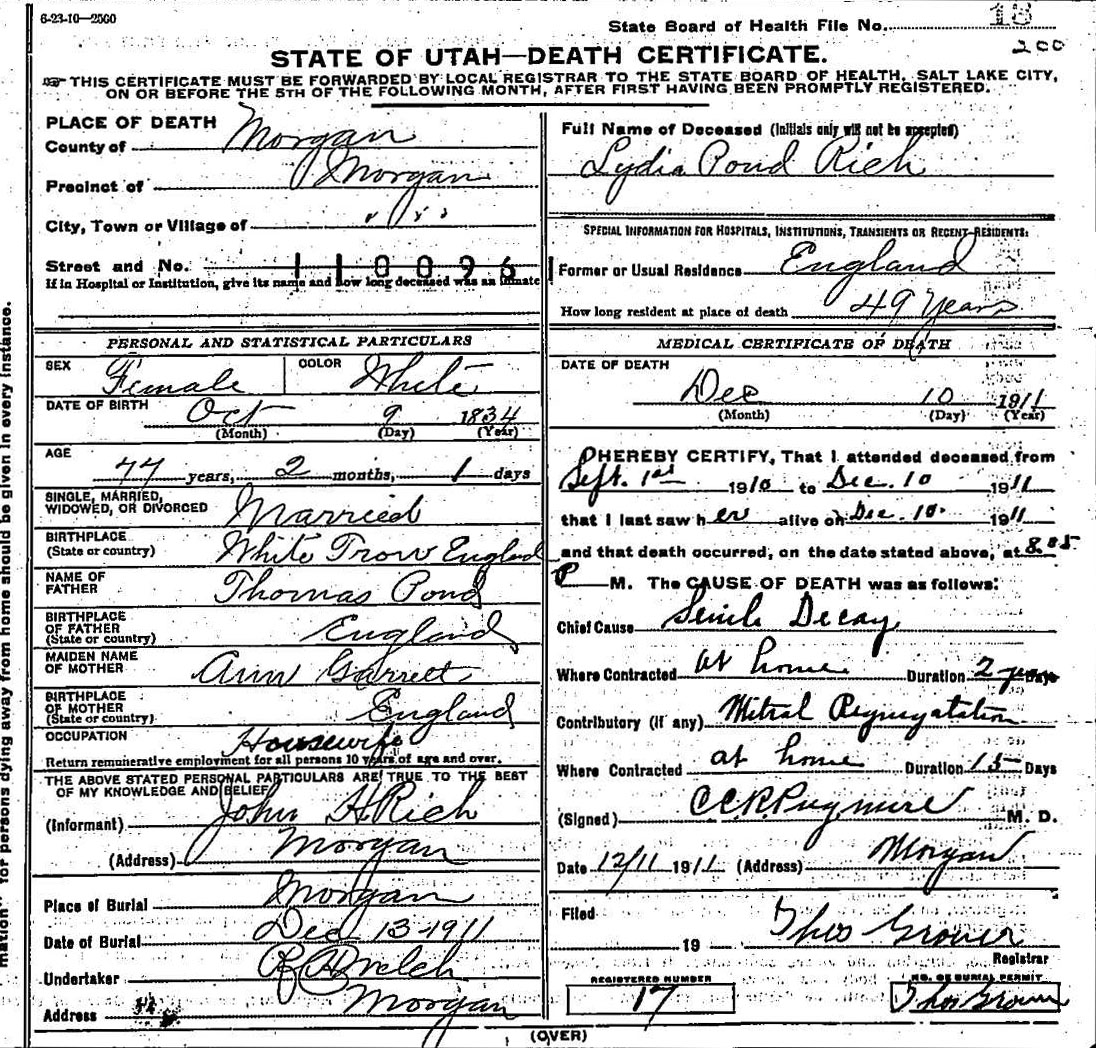 6-23-10—2500
State Board of Health File No. 18
200
STATE OF UTAH—DEATH CERTIFICATE.
THIS CERTIFICATE MUST BE FORWARDED BY LOCAL REGISTRAR TO THE STATE BOARD OF HEALTH, SALT LAKE CITY,
ON OR BEFORE THE 5TH OF THE FOLLOWING MONTH, AFTER FIRST HAVING BEEN PROMPTLY REGISTERED.
PLACE OF DEATH
County of Morgan
Precinct of Morgan
City, Town or Village of " "
Street and No. 110096
If in Hospital or Institution, give its name and how long deceased was an inmate
PERSONAL AND STATISTICAL PARTICULARS
SEX Female COLOR White
DATE OF BIRTH Oct 9 1834
(Month) (Day) (Year)
AGE
77 years, 2 months, 1 days
SINGLE, MARRIED,
WIDOWED, OR DIVORCED Married
BIRTHPLACE
(State or country) White Trow England
NAME OF
FATHER Thomas Pond
BIRTHPLACE
OF FATHER
(State or country) England
MAIDEN NAME
OF MOTHER Ann Garrett
BIRTHPLACE
OF MOTHER
(State or country) England
OCCUPATION Housewife
Return remunerative employment for all persons 10 years of age and over.
THE ABOVE STATED PERSONAL PARTICULARS ARE TRUE TO THE BEST
OF MY KNOWLEDGE AND BELIEF
(Informant) John H Rich
(Address) Morgan
Place of Burial Morgan
Date of Burial Dec 13-1911
Undertaker Welch
Address Morgan
Full Name of Deceased (Initials only will not be accepted)
Lydia Pond Rich
SPECIAL INFORMATION FOR HOSPITALS, INSTITUTIONS, TRANSIENTS OR RECENT RESIDENTS:
Former or Usual Residence England
How long resident at place of death 49 Years
MEDICAL CERTIFICATE OF DEATH
DATE OF DEATH
Dec 10 1911
(Month) (Day) (Year)
I HEREBY CERTIFY, That I attended deceased from
Sept. 1st 1910 to Dec. 10 1911
that I last saw her alive on Dec. 10. 1911
and that death occurred, on the date stated above, at 8
P M. The CAUSE OF DEATH was as follows:
Chief Cause Senile Decay
Where Contracted at home Duration 2 years Days
Contributory (if any) Mitral Regurgitation
Where Contracted at home Duration 15 Days
(Signed) C.C.R. Pugmire M. D.
Date 12/11 1911 (Address) Morgan
Filed
19 Thos Grover
Registrar
REGISTERED NUMBER
17
NO. OF BURIAL PERMIT
Thos Grover
(OVER)
for persons dying away from home should be given in every instance.